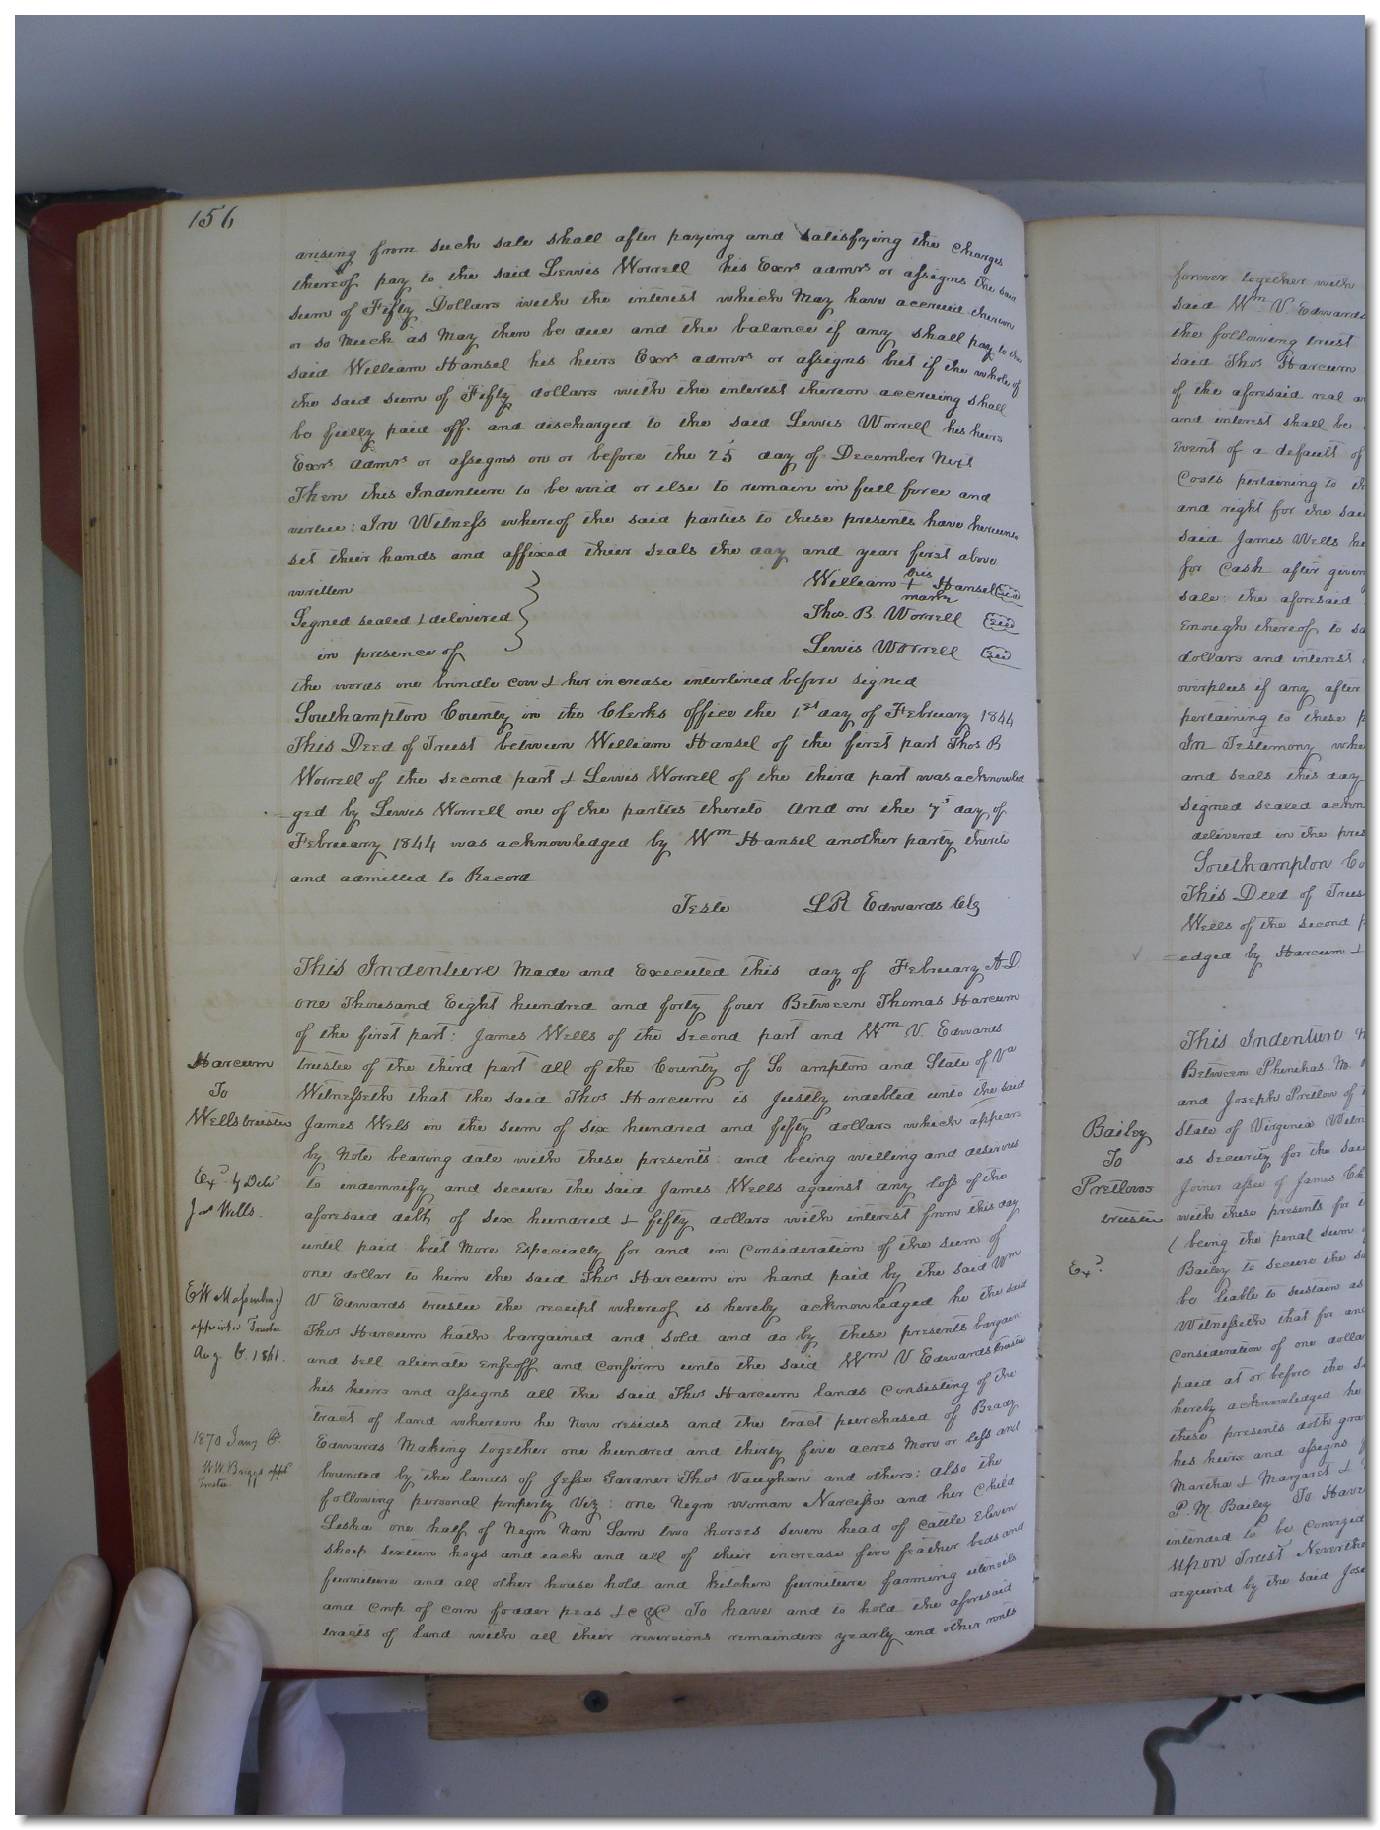 156
arising from such sale shall after paying and satisfying the charges
thereof pay to the said Lewis Worrell his Exrs admrs or assigns the said
sum of Fifty Dollars with the interest which May have accrued thereon
or so Much as May then be due and the balance if any shall pay to the
said William Hansel his heirs Exrs admrs or assigns but if the whole of
the said sum of Fifty dollars with the interest thereon accruing shall
be fully paid off and discharged to the said Lewis Worrell his heirs
Exrs admrs or assigns on or before the 25 day of December Next
Then this Indenture to be void or else to remain in full force and
virtue: In Witness whereof the said parties to these presents have hereunto
set their hands and affixed their seals the day and year first above
written
William his + mark Hansel
Signed sealed & delivered
Thos. B. Worrell
in presence of
Lewis Worrell
the words one brindle cow & her increase interlined before signed
Southampton County in the Clerks office the 1st day of February 1844
This Deed of Trust between William Hansel of the first part Thos B
Worrell of the second part & Lewis Worrell of the third part was acknowled
ged by Lewis Worrell one of the parties thereto And on the 7th day of
February 1844 was acknowledged by Wm Hansel another party thereto
and admitted to Record
Teste LR Edwards Clk
This Indenture Made and Executed this day of February AD
one Thousand Eight hundred and forty four Between Thomas Harcum
of the first part: James Wells of the second part and Wm V. Edwards
trustee of the third part all of the County of So ampton and State of Va
Witnesseth that the said Thos Harcum is justly indebted unto the said
James Wels in the sum of six hundred and fifty dollars which appears
by Note bearing date with these presents and being willing and desirous
to indemnify and secure the said James Wells against any loss of the
aforesaid debt of six hundred & fifty dollars with interest from this day
until paid but More Especially for and in Consideration of the sum of
one dollar to him the said Thos Harcum in hand paid by the said Wm
V Edwards trustee the receipt whereof is hereby acknowledged he the said
Thos Harcum hath bargained and sold and do by these presents bargain
and sell alienate enfeoff and confirm unto the said Wm V Edwards trustee
his heirs and assigns all the said Thos Harcum lands Consisting of the
tract of land whereon he Now resides and the tract purchased of
Edwards Making together one hundred and thirty five acres More or less and
bounded by the lands of Jesse Gardner Thos Vaughan and others: also the
following personal property Viz: one Negro woman Narcissa and her Child
one half of Negro Man Sam two horses seven head of cattle Eleven
sheep sixteen hogs and each and all of their increase five feather beds and
furniture and all other house hold and kitchen furniture farming utensils
and crop of corn fodder peas &c &C To have and to hold the aforesaid
tracts of land with all their reversions remainders yearly and other rents
Harcum
To
Wells trustee
Jas Wells.
EW Massenburg
appointed Trustee
Aug Ct. 1861.
1870 Jany Ct.
WW Briggs appt
trustee
forever together with
said Wm V. Edwards
the following trust
said Thos Harcum
of the aforesaid real
and interest shall be
Event of a default of
Costs pertaining to
and right for the said
said James Wells
for Cash after given
sale: the aforesaid
Enough thereof to
dollars and interest
overplus if any after
pertaining to these
In Testimony
and seals this day
Signed sealed
delivered in the
Southampton
This Deed of
Wells of the second
edged by Harcum &
This Indenture
Between Phinihas M.
and Joseph Pretlow of
State of Virginia
as security for the said
Joiner assee of James
with these presents for
(being the penal sum
Bailey to secure the
be liable to sustain as
Witnesseth that for
Consideration of one
paid at or before the
hereby acknowledged he
these presents doth
his heirs and assigns
Martha & Margaret &
P. M. Bailey To Have
intended to be Conveyed
Upon Trust
acquired by the said
Bailey
To
Pretlow
trustee